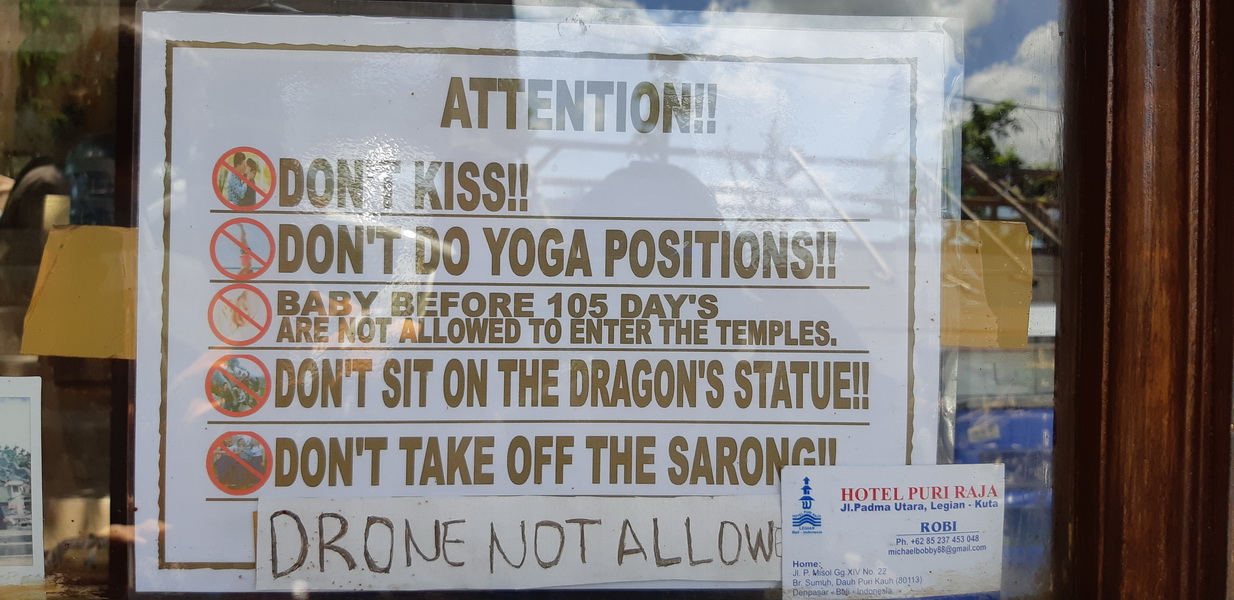 ATTENTION!!
DON'T KISS!!
DON'T DO YOGA POSITIONS!!
BABY BEFORE 105 DAY'S
ARE NOT ALLOWED TO ENTER THE TEMPLES.
DON'T SIT ON THE DRAGON'S STATUE!!
DON'T TAKE OFF THE SARONG!!
DRONE NOT ALLOWE
HOTEL PURI RAJA
Jl.Padma Utara, Legian - Kuta
LEGIAN
Bali - Indonesia
ROBI
Ph. +62 85 237 453 048
michaelbobby88@gmail.com
Home:
Jl. P. Misol Gg XIV No. 22
Br. Sumuh, Dauh Puri Kauh (80113)
Denpasar - Bali - Indonesia